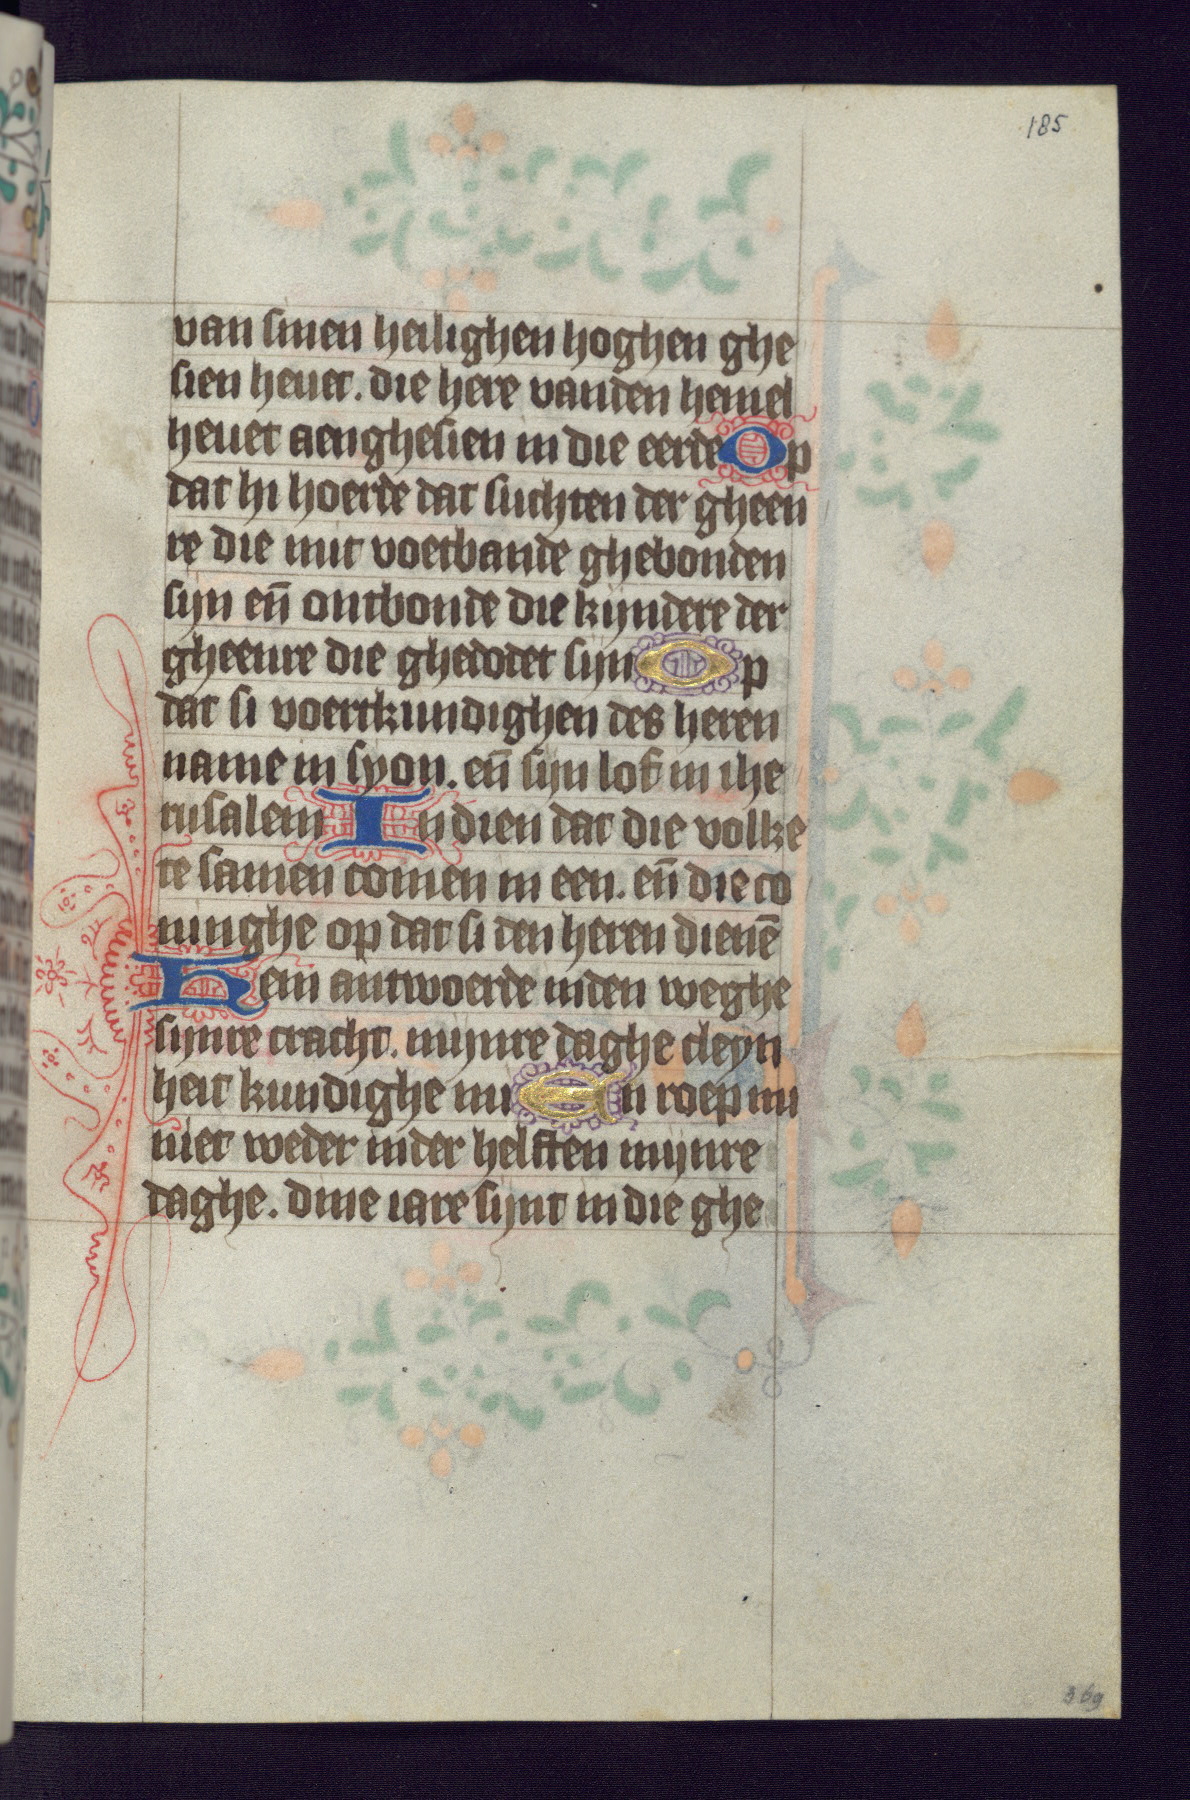 185
van sinen heilighen hoghen ghe
sien heuet. die here vanden hemel
heuet aenghesien in die eerde Op
dat hi hoerde dat suchten der gheen
re die mit voetbande ghebonden
sijn en̄ ontbonde die kijndere der
gheenre die ghedodet sijn Op
dat si voertkundighen des heren
name in syon. en̄ sijn lof in ihe
rusalem In dien dat die volke
te samen comen in een. en̄ die co
ninghe op dat si den heren dienē
Hem antwoerde inden weghe
sijnre cracht. mijnre daghe cleyn
heit kundighe mi En roep mi
niet weder inder helften mijnre
daghe. dine iare sijnt in die ghe
369